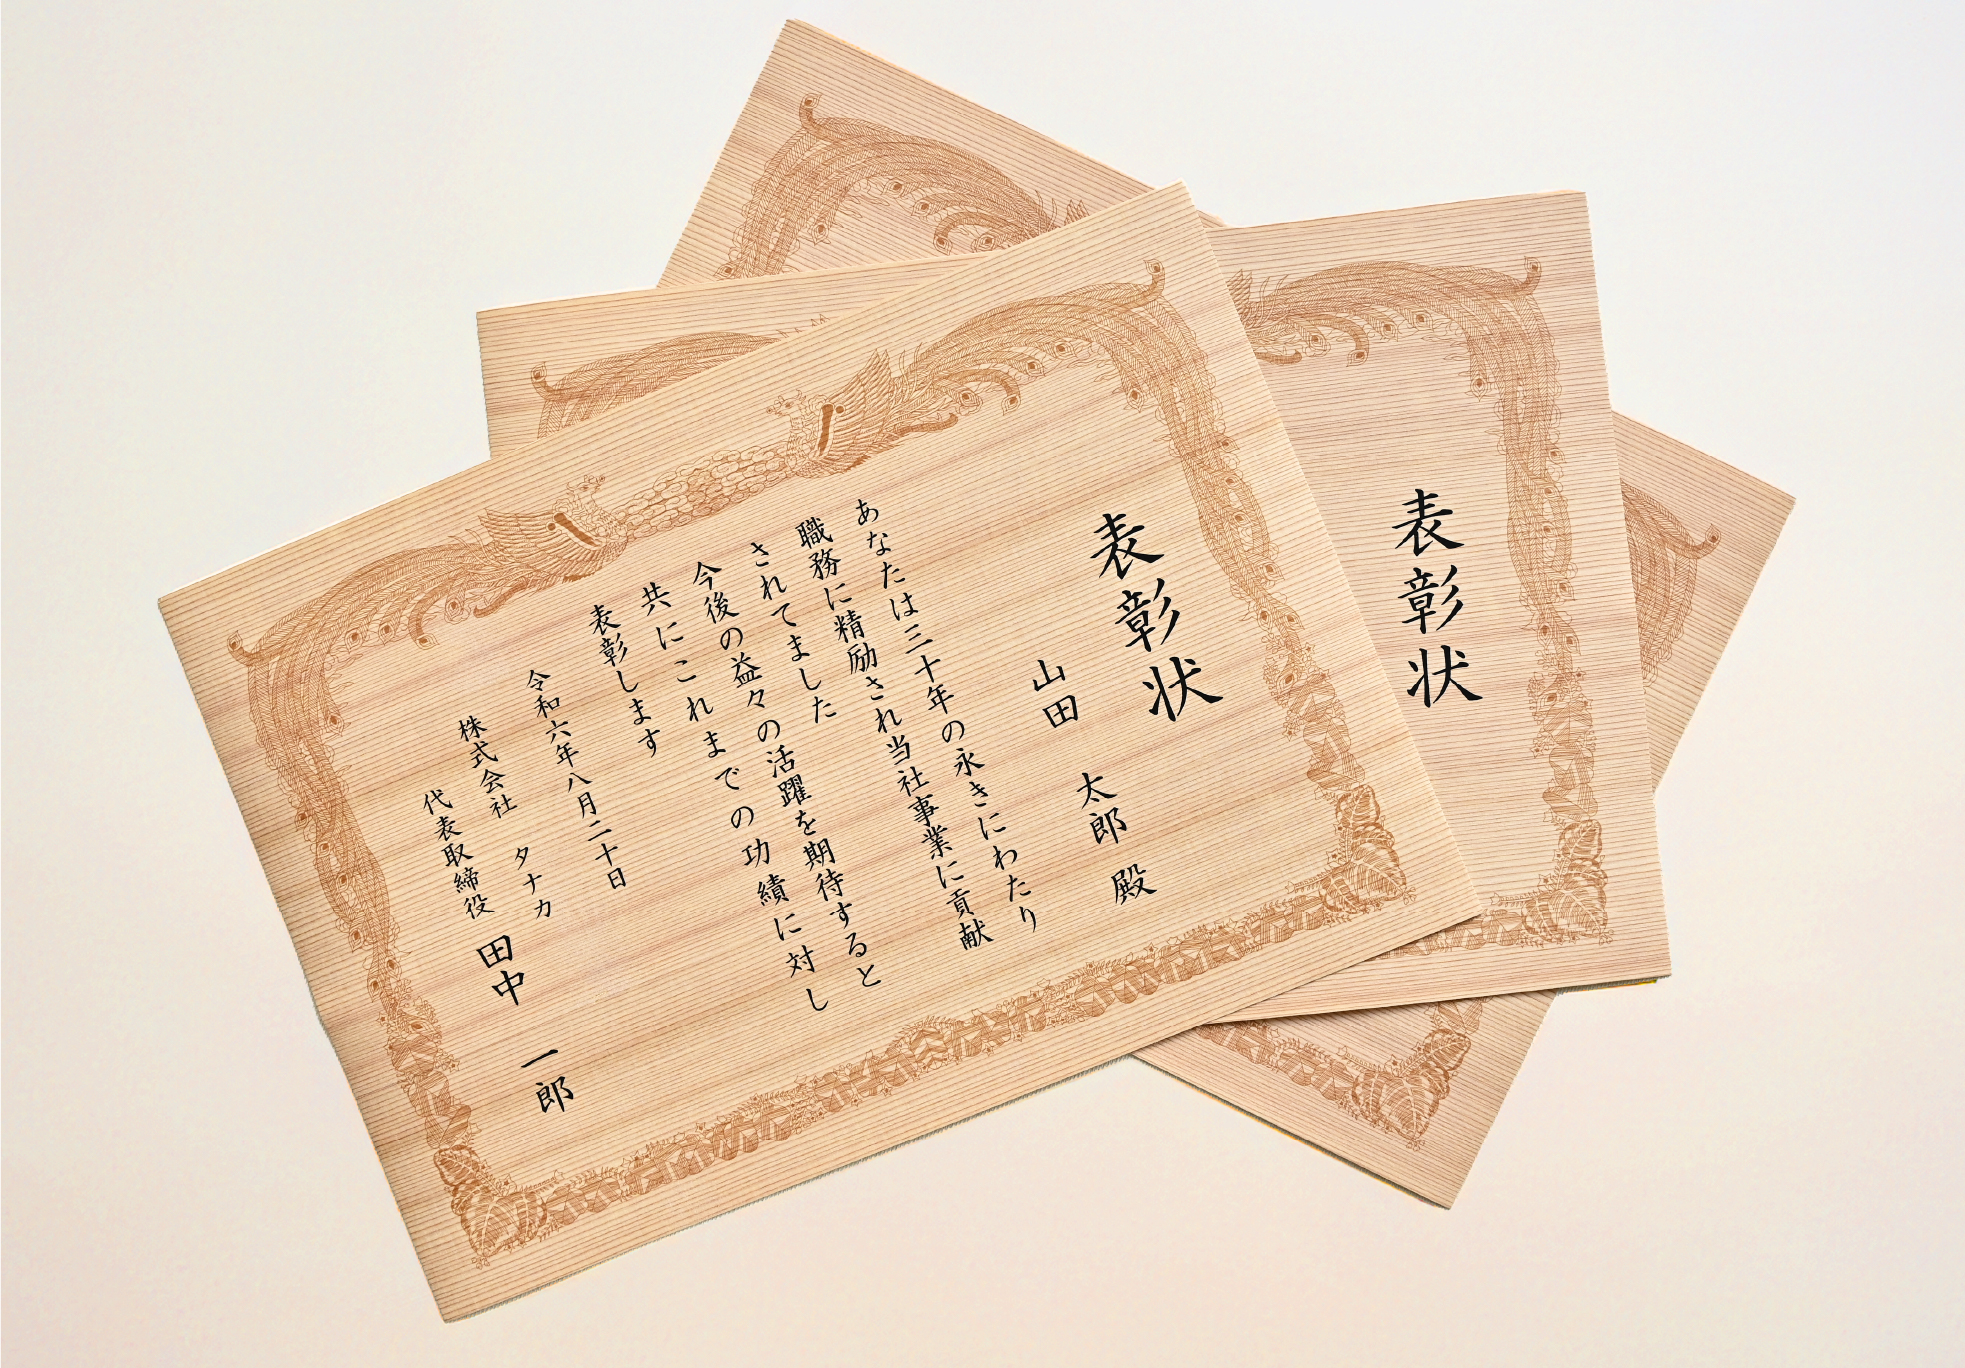 表彰状
山田 太郎 殿
あなたは三十年の永きにわたり
職務に精励され当社事業に貢献
されてました
今後の益々の活躍を期待すると
共にこれまでの功績に対し
表彰します
令和六年八月二十日
株式会社 タナカ
代表取締役 田中 一郎
表彰状